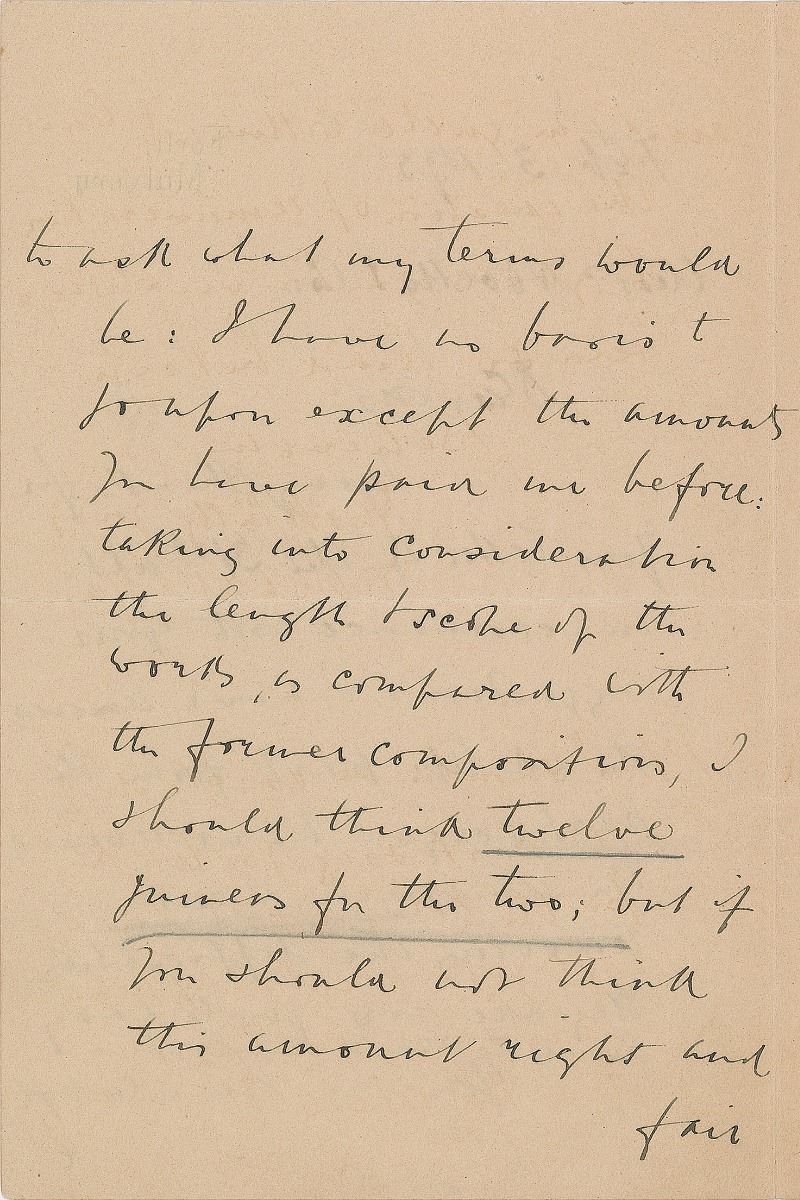 to ask what my terms would
be: I have no basis t
go upon except the amounts
you have paid me before:
taking into consideration
the length & scope of the
works, as compared with
the former compositions, I
should think twelve
guineas for the two; but if
you should not think
this amount right and
fair